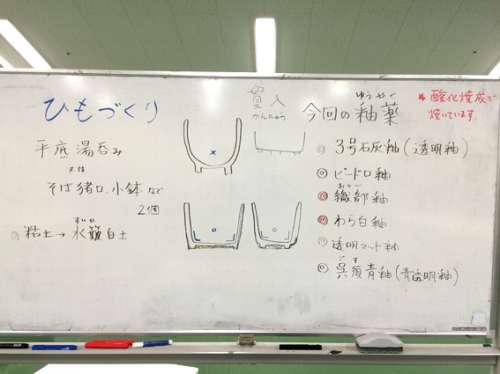 ひもづくり
平底 湯呑み
又は
そば猪口、小鉢 など
2個
粘土→水簸白土
すいひ
貫入
かんにゅう
今回の釉薬
ゆうやく
※酸化焼成で
焼いています
3号石灰釉(透明釉)
ビードロ釉
おりべ
織部釉
わら白釉
透明マット釉
ごす
呉須青釉(青透明釉)